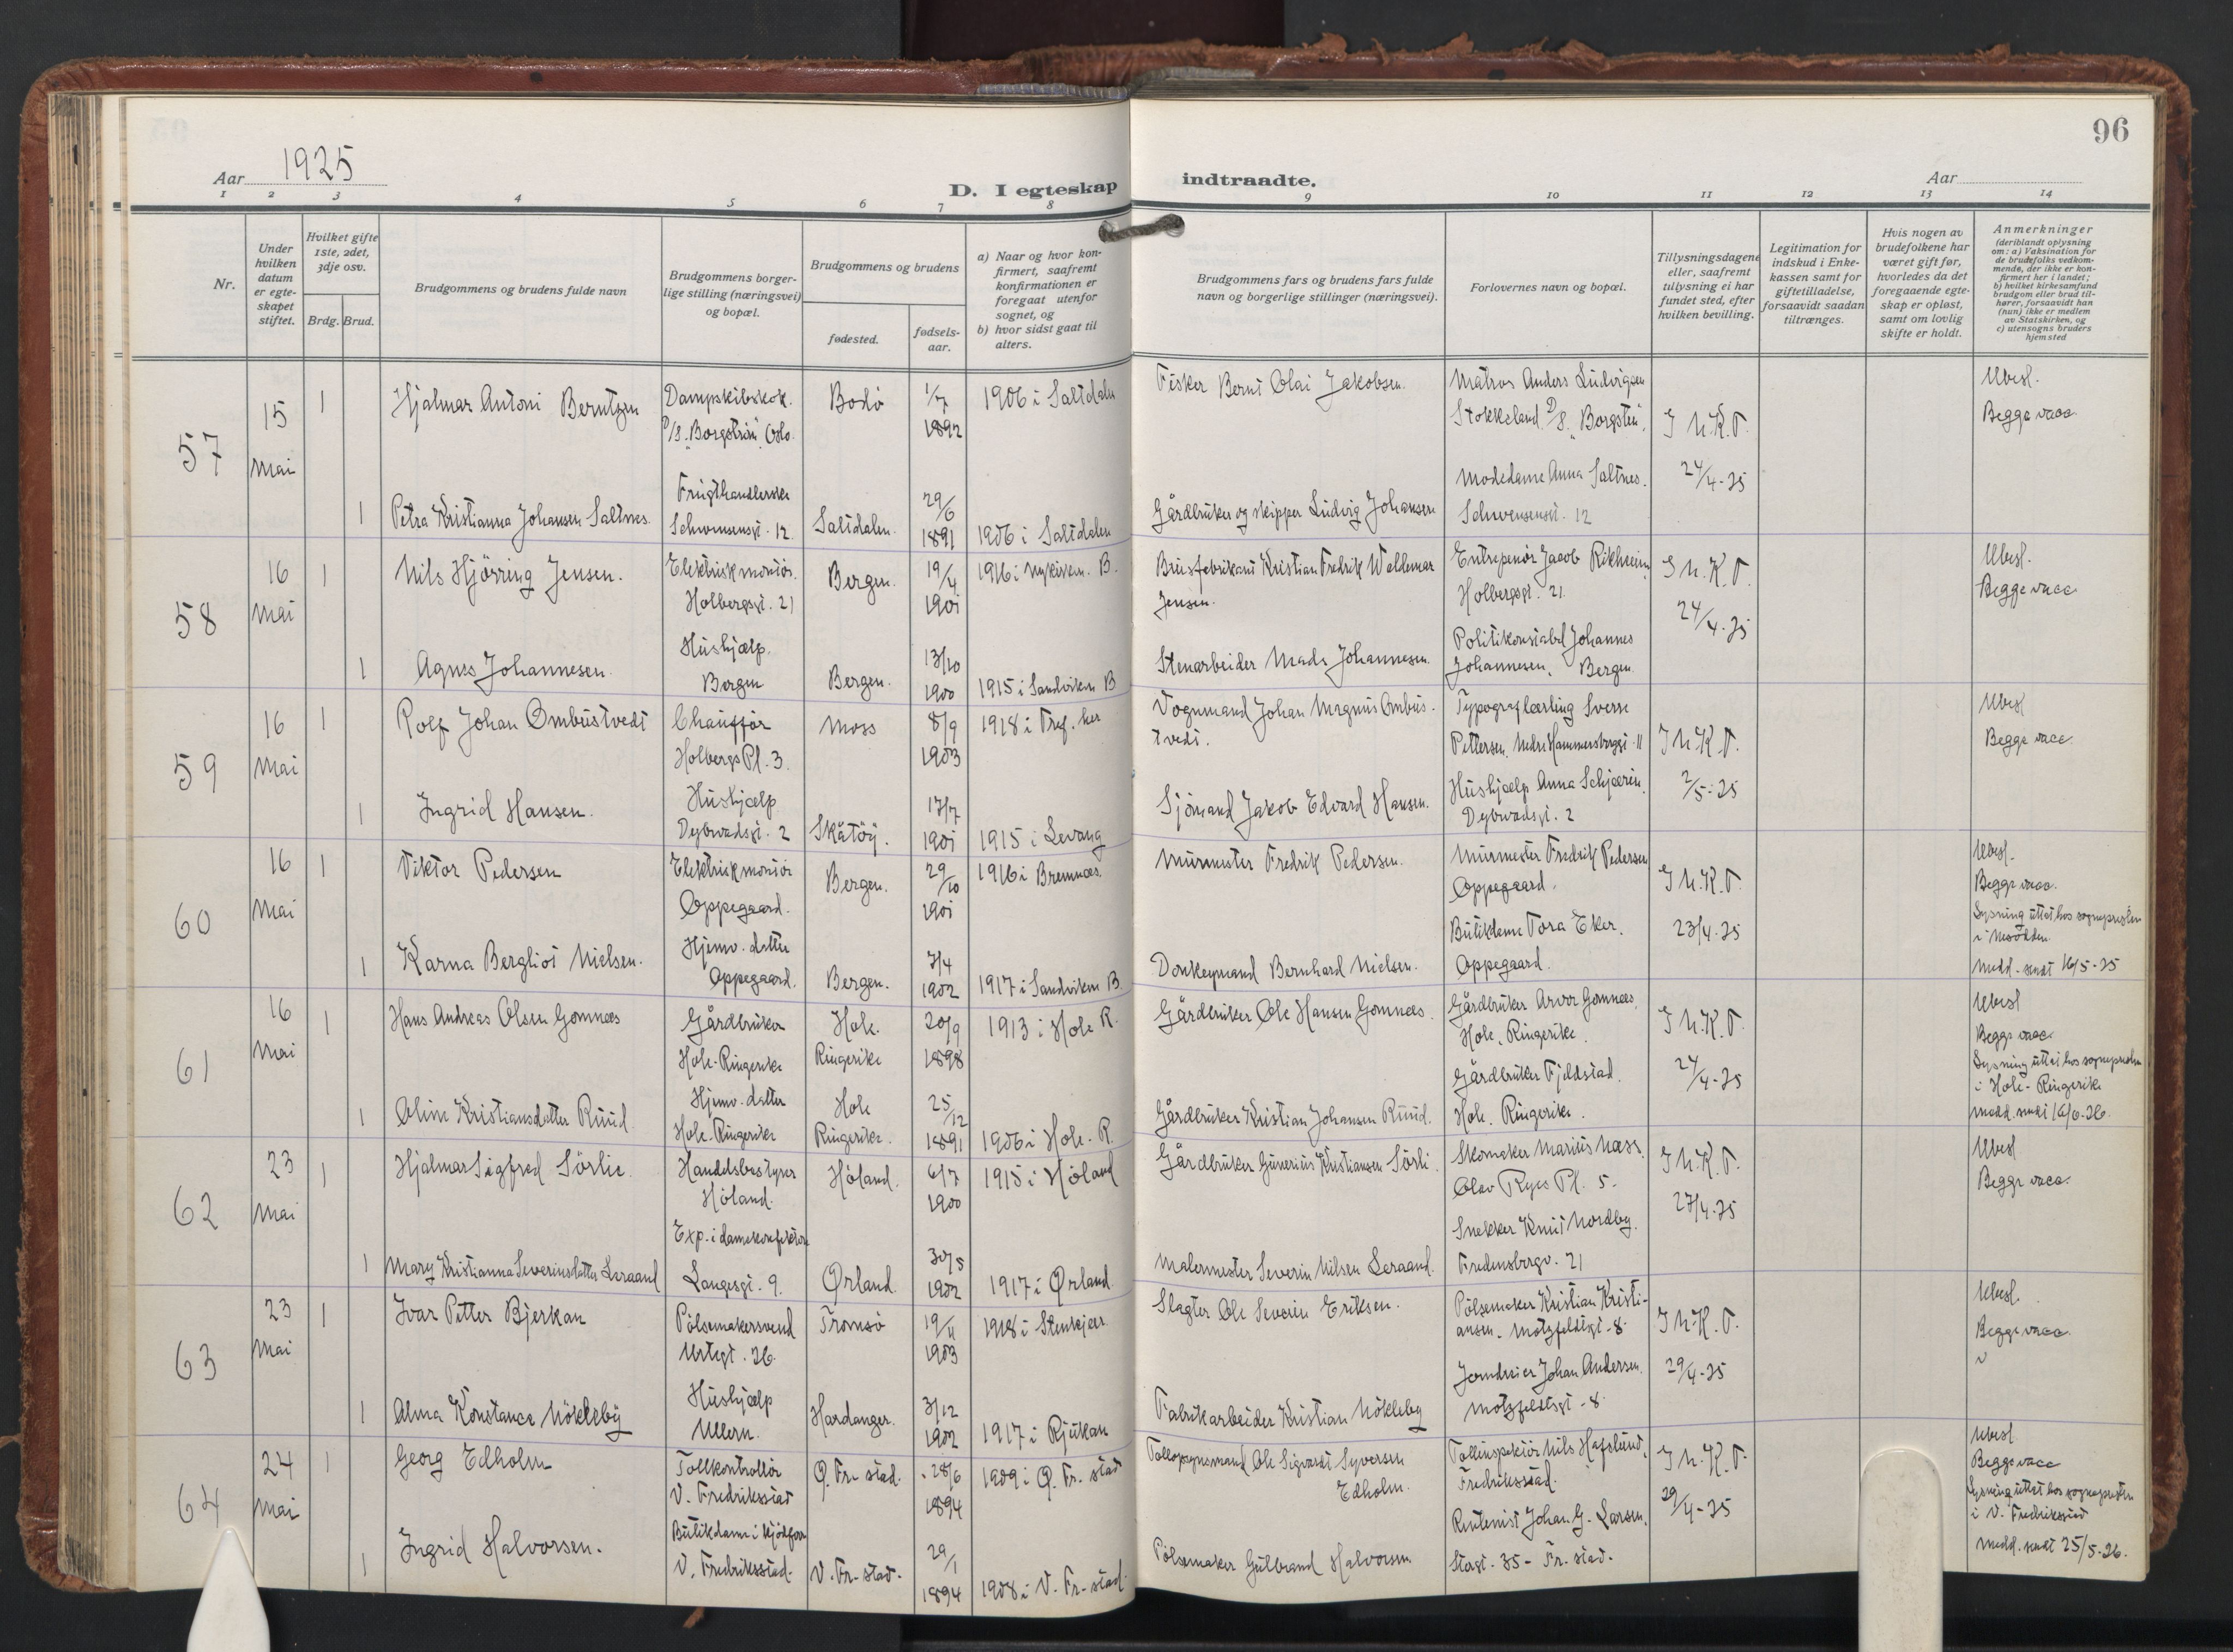 96
Aar 1925
D. I egteskap indtraadte.
Aar
1 2 3 4 5 6 7 8 9 10 11 12 13 14
Nr.
Under
hvilken
datum
er egte-
skapet
stiftet.
Hvilket gifte
1ste, 2det,
3dje osv.
Brdg. Brud.
Brudgommens og brudens fulde navn
Brudgommens borger-
lige stilling (næringsvei)
og bopæl.
Brudgommens og brudens
fødested.
fødsels-
aar.
a) Naar og hvor kon-
firmert, saafremt
konfirmationen er
foregaat utenfor
sognet, og
b) hvor sidst gaat til
alters.
Brudgommens fars og brudens fars fulde
navn og borgerlige stillinger (næringsvei).
Forlovernes navn og bopæl.
Tillysningsdagene
eller, saafremt
tillysning ei har
fundet sted, efter
hvilken bevilling.
Legitimation for
indskud i Enke-
kassen samt for
giftetilladelse,
forsaavidt saadan
tiltrænges.
Hvis nogen av
brudefolkene har
været gift før,
hvorledes da det
foregaaende egte-
skap er opløst,
samt om lovlig
skifte er holdt.
Anmerkninger
(deriblandt oplysning
om: a) Vaksination for
de brudefolks vedkom-
mende, der ikke er kon-
firmert her i landet;
b) hvilket kirkesamfund
brudgom eller brud til-
hører, forsaavidt han
(hun) ikke er medlem
av Statskirken, og
c) utensogns bruders
hjemsted
57
15
Mai
1
Hjalmar Antoni Berntzen
Dampskibskok.
D/S. "Borgström", Oslo.
Bodö
1/7
1892
1906 i Saltdalen
Fisker Bernt Olai Jakobsen.
Matros Anders Ludvigsen
Stokkeland D/S. "Borgsten",
I N.K.T.
24/4-25
Ubesl.
Begge vacc.
1
Petra Kristianna Johansen Saltnes.
Frugthandlerske
Schwensensgt. 12
Saltdalen.
29/6
1891
1906 i Saltdalen
Gårdbruker og skipper Ludvig Johansen
Modedame Anna Saltnes.
Schwensensgt. 12
58
16
Mai
1
Nils Hjörring Jensen.
Elektriskmontör.
Holbergsgt. 21
Bergen.
19/4
1901
1916 i Nykirken. B.
Brusfabrikant Kristian Fredrik Waldemar
Jensen.
Entrepenör Jacob Rikheim
Holbergsgt. 21
I N.K.T.
24/4-25
Ubesl.
Begge vacc
1
Agnes Johannesen.
Hushjælp.
Bergen
Bergen.
13/10
1900
1915 i Sandviken B
Stenarbeider Mads Johannesen.
Politikonstabel Johannes
Johannesen, Bergen.
59
16
Mai
1
Rolf Johan Ombustvedt
Chaufför
Holbergs Pl. 3.
Moss
8/9
1903
1918 i Tref. her
Vognmand Johan Magnus Ombus-
tvedt.
Typograflærling Sverre
Pettersen, Nedre Hammersborggt. 11
I N.K.T.
2/5-25
Ubesl
Begge vacc.
1
Ingrid Hansen.
Hushjælp
Dybwadsgt. 2
Skåtöy.
17/7
1901
1915 i Levang
Sjömand Jakob Edvard Hansen.
Hushjælp Anna Schjærin.
Dybwadsgt. 2
60
16
Mai
1
Viktor Pedersen
Elektriskmontör
Oppegaard.
Bergen.
29/10
1901
1916 i Bremnæs.
Murmester Fredrik Pedersen.
Murmester Fredrik Pedersen
Oppegaard.
I N.K.T.
23/4-25
Ubesl.
Begge vacc.
Lysning uttat hos sognepresten
i Nesodden.
Medd. sendt 16/5-25
1
Karna Bergliot Nielsen.
Hjemv. datter
Oppegaard.
Bergen.
7/4
1902
1917 i Sandviken B.
Donkeymand Bernhard Nielsen.
Butikdame Tora Eker.
Oppegaard.
61
16
Mai
1
Hans Andreas Olsen Gomnæs
Gårdbruker
Hole-Ringerike
Hole.
Ringerike
20/9
1898
1913 i Hole R.
Gårdbruker Ole Hansen Gomnæs.
Gårdbruker Arvor Gomnæs,
Hole, Ringerike.
I N.K.T.
24/4-25
Ubesl
Begge vacc.
Lysning uttat hos sognepresten
i Hole-Ringerike
1
Oline Kristiansdatter Ruud.
Hjemv. datter
Hole-Ringerike
Hole
Ringerike.
25/12
1891
1906 i Hole. R.
Gårdbruker Kristian Johansen Ruud.
Gårdbruker Fjeldstad.
Hole. Ringerike.
62
23
Mai
1
Hjalmar Sigfred Sörlie.
Handelsbestyrer
Höland.
Höland.
6/7
1900
1915 i Höland
Gårdbruker Gunerius Kristiansen Sörli.
Skomaker Marius Næss.
Olav Ryes Pl. 5.
I N.K.T.
27/4-25
Ubesl
Begge vacc.
1
Mary Kristianna Severinsdatter Leraand
Exp. i damekonfektion
Langesgt. 9.
Ørland.
30/5
1902
1917 i Ørland.
Malermester Severin Nilsen Leraand.
Snekker Knut Nordby.
Fredensborgv. 21
63
23
Mai
1
Ivar Petter Bjerkan
Pölsemakersvend
Urtegt. 26.
Tromsö
19/11
1903
1918 i Stenkjær
Slagter Ole Severin Eriksen.
Pölsemaker Kristian Kristi-
ansen. Motzfeldtsgt-8.
I N.K.T.
29/4-25
Ubesl.
Begge vacc.
1
Alma Konstance Nökleby
Hushjælp
Ullern.
Hardanger.
3/12
1902
1917 i Rjukan
Fabrikarbeider Kristian Nökleby
Jerndreier Johan Andersen.
Motzfeldtsgt-8.
64
24
Mai
1
Georg Edholm
Tollkontrollör
V. Fredriksstad
Ø. Fr. stad.
28/6
1894
1909 i Ø. Fr. stad
Tollopsynsmand Ole Sigvardt Syversen
Edholm.
Tollinspektör Nils Hafslund,
Fredriksstad.
I N.K.T.
29/4-25
Ubesl.
Begge vacc
Lysning uttat hos sognepresten
i V. Fredriksstad
Medd. sendt 25/5-26.
1
Ingrid Halvorsen.
V. Fredriksstad.
V. Fr-stad.
29/1
1894
1908 i V. Fr-stad.
Pölsemaker Gulbrand Halvorsen
Rentenist Johan G. Larsen,
Storgt. 35 - Fr. stad.